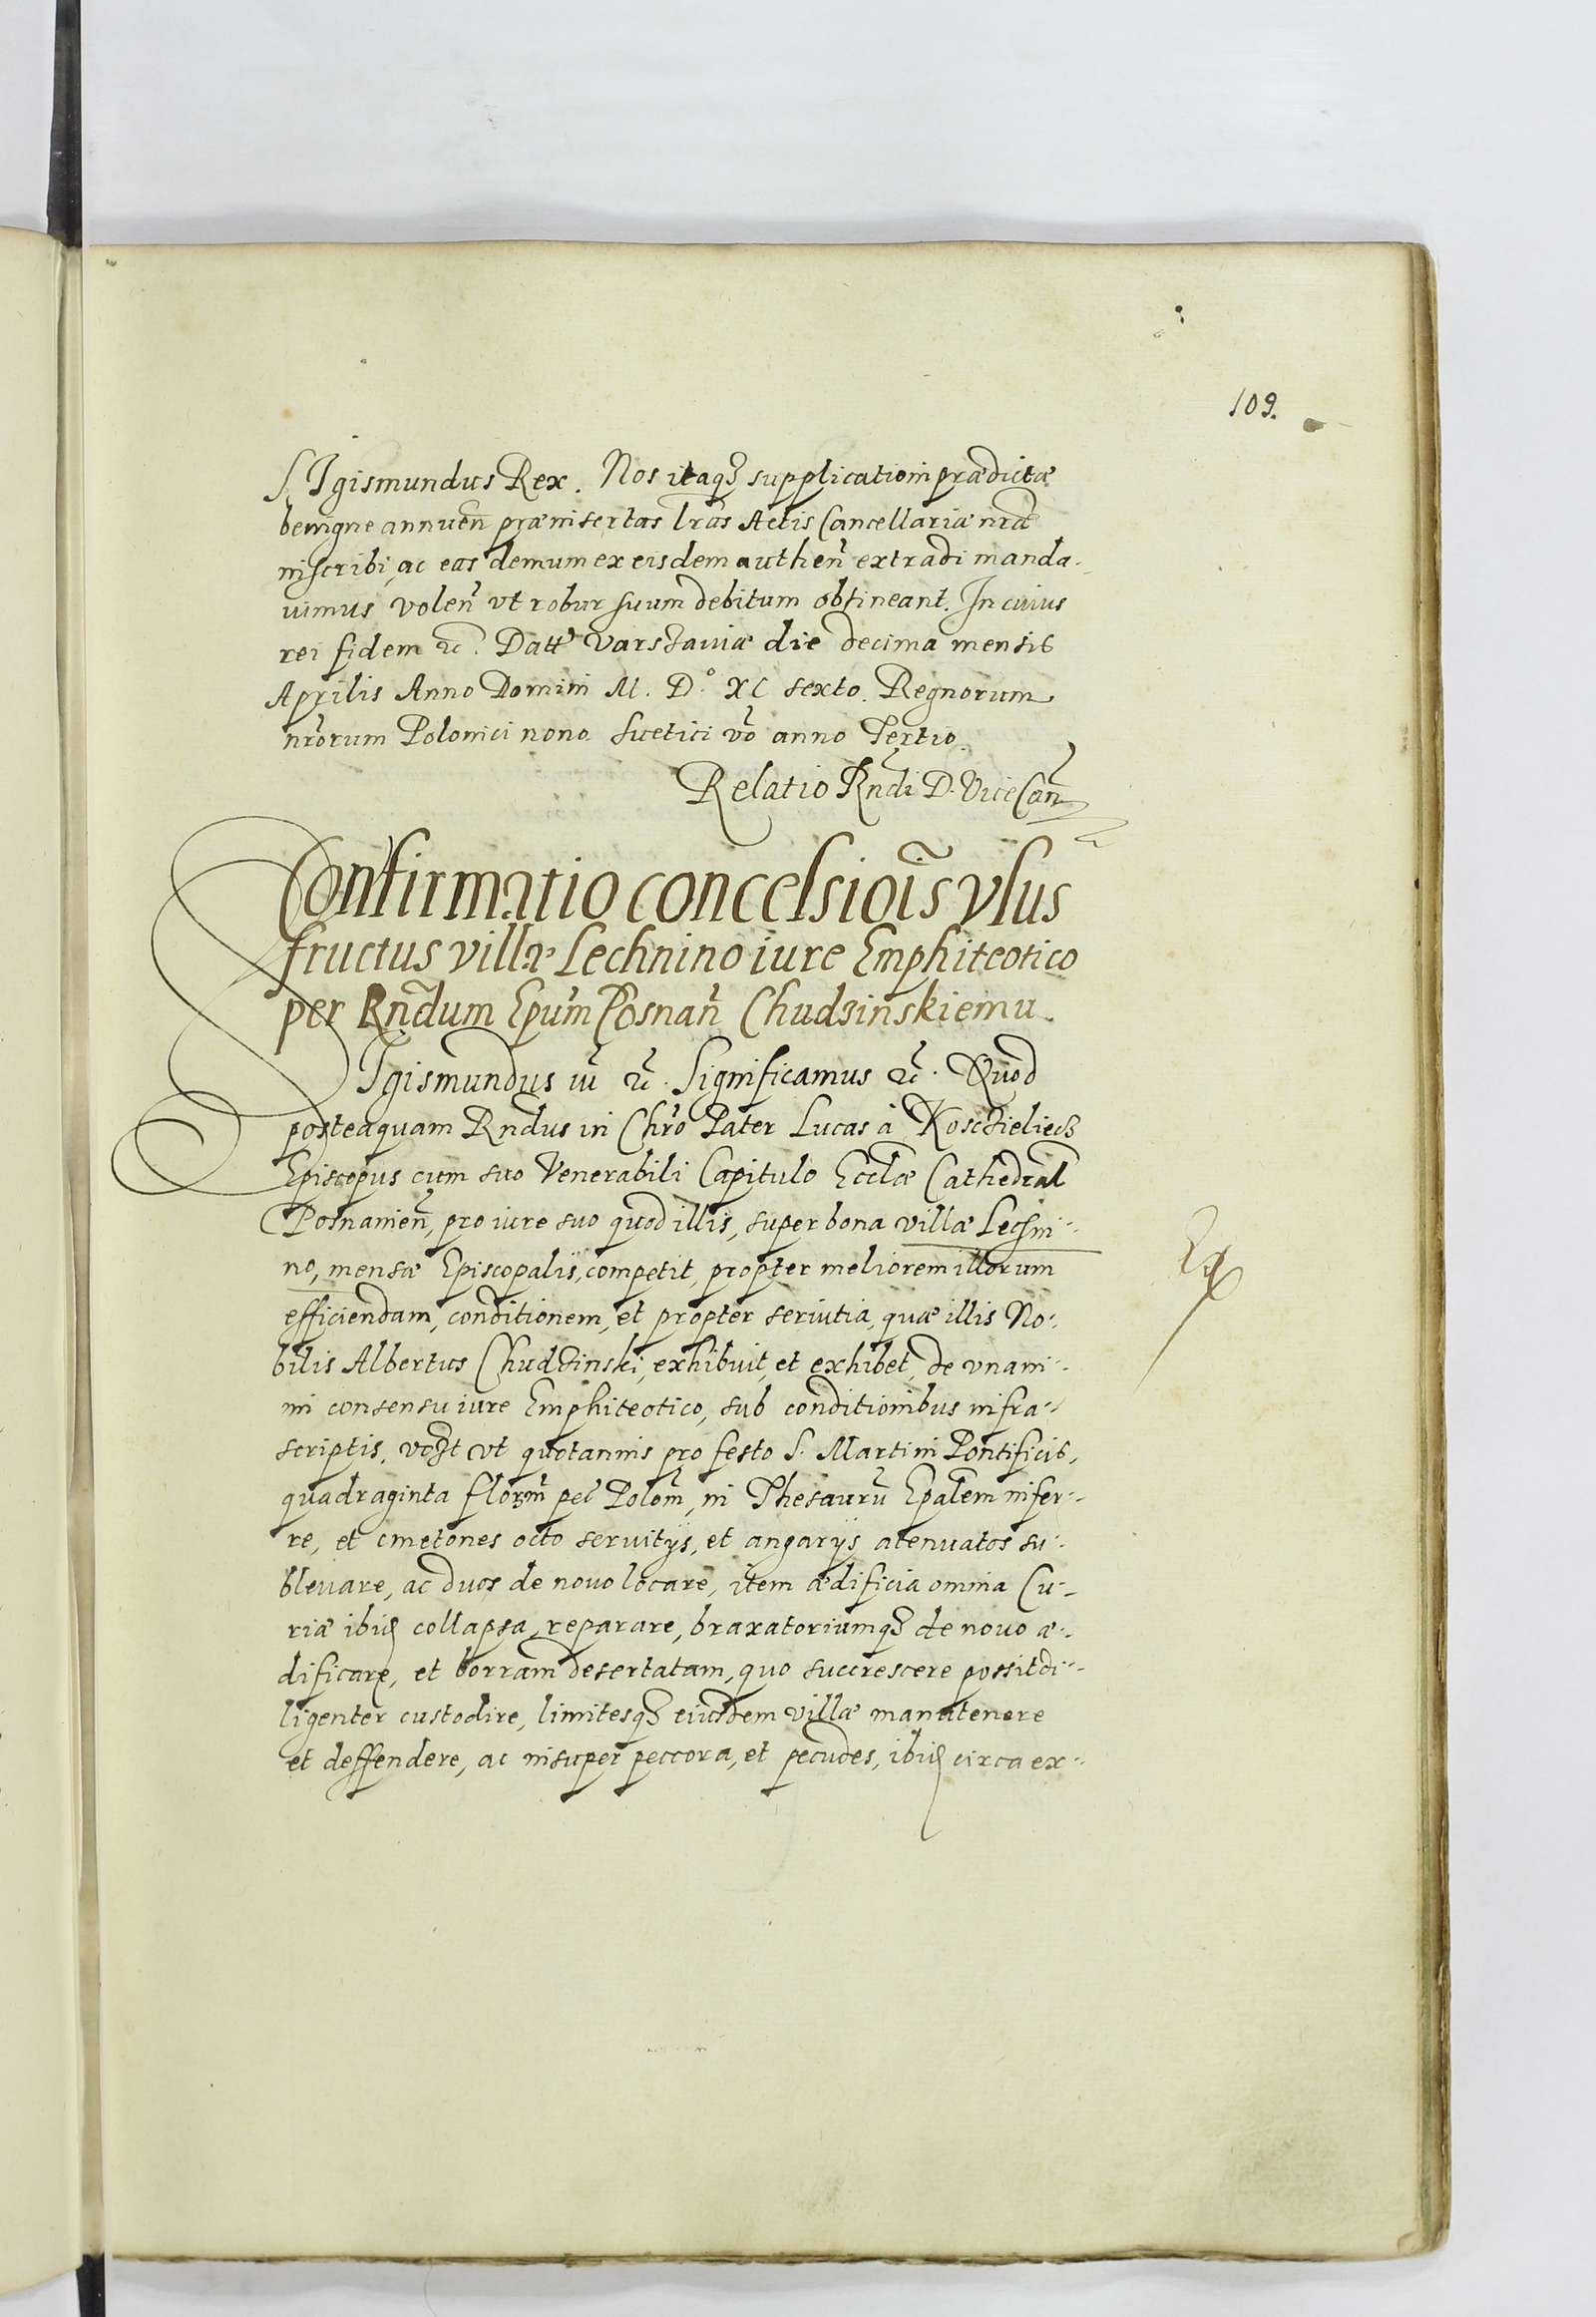 109.
SIgismundus Rex. Nos itaqȝ supplicationi prædictæ
benigne annuen̄ præinsertas l̄ras Actis Cancellariæ nr̄æ
inscribi, ac eas demum ex eisdem authen̄ extradi manda-
uimus volen̄ vt robur suum debitum obtineant. In cuius
rei fidem ꝛc. Datt Varsɜauiæ die decima mensis
Aprilis Anno Domini M. D.º XC sexto. Regnorum
nr̄orum Polonici nono. Suetici vō anno Tertio.
Relatio Rn̄di D. ViceCan̄
Confirmatio concelsiōis vsus
fructus villæ Lechnino iure Emphiteotico
per Rn̄dum Epūm Posnan̄ Chudɜinskiemu.
SIgismundus iii ꝛc. Significamus ꝛc. Quod
posteaquam Rn̄dus in Chr̄o Pater Lucas à Kosczieliecz
Episcopus cum suo Venerabili Capitulo Eccl̄æ Cathedral
Posnanien̄, pro iure suo quod illis, super bona villæ Lechni-
no, mensæ Episcopalis, competit, propter meliorem illorum
efficiendam, conditionem, et propter seruitia, quæ illis No-
bilis Albertus Chudzinski, exhibuit, et exhibet, de vnani-
mi consensu iure Emphiteotico, sub conditionibus infra-
scriptis, vt quotannis pro festo S. Martini Pontificis,
quadraginta flor̄m pec̄ Polon̄, in Thesaurū Ep̄alem infer-
re, et cmetones octo seruitijs, et angarijs atenuatos su-
bleuare, ac duos de nouo locare, item ædificia omnia Cu-
riæ ibid collapsa, reparare, braxatoriumqȝ de nouo æ-
dificare, et borram desertatam, quo succrescere possit di-
ligenter custodire, limitesqȝ eiusdem villæ manutenere
et deffendere, ac insuper peccora, et pecudes, ibid circa ex-